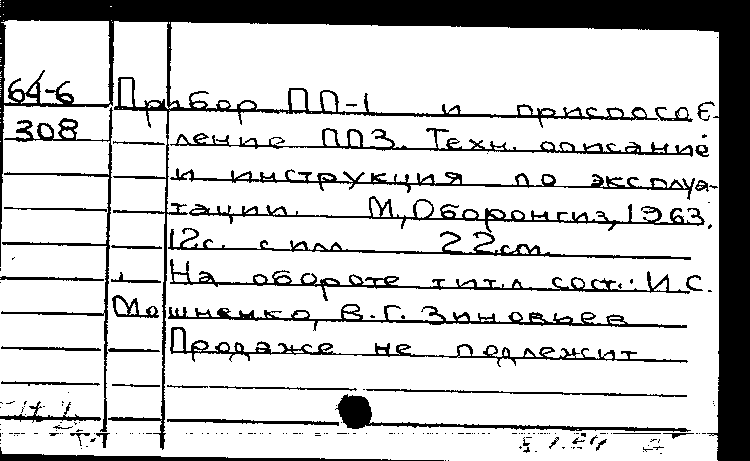 64-6 Прибор ПП-1 и приспособ-
308 ление ППЗ. Техн. описание
и инструкция по эксплуа-
тации. М., Оборонгиз, 1963.
12с. с илл 22 cm.
На обороте тит. л. сост.: И.С.
Мошненко, В.Г. Зиновьев
Продаже не подлежит